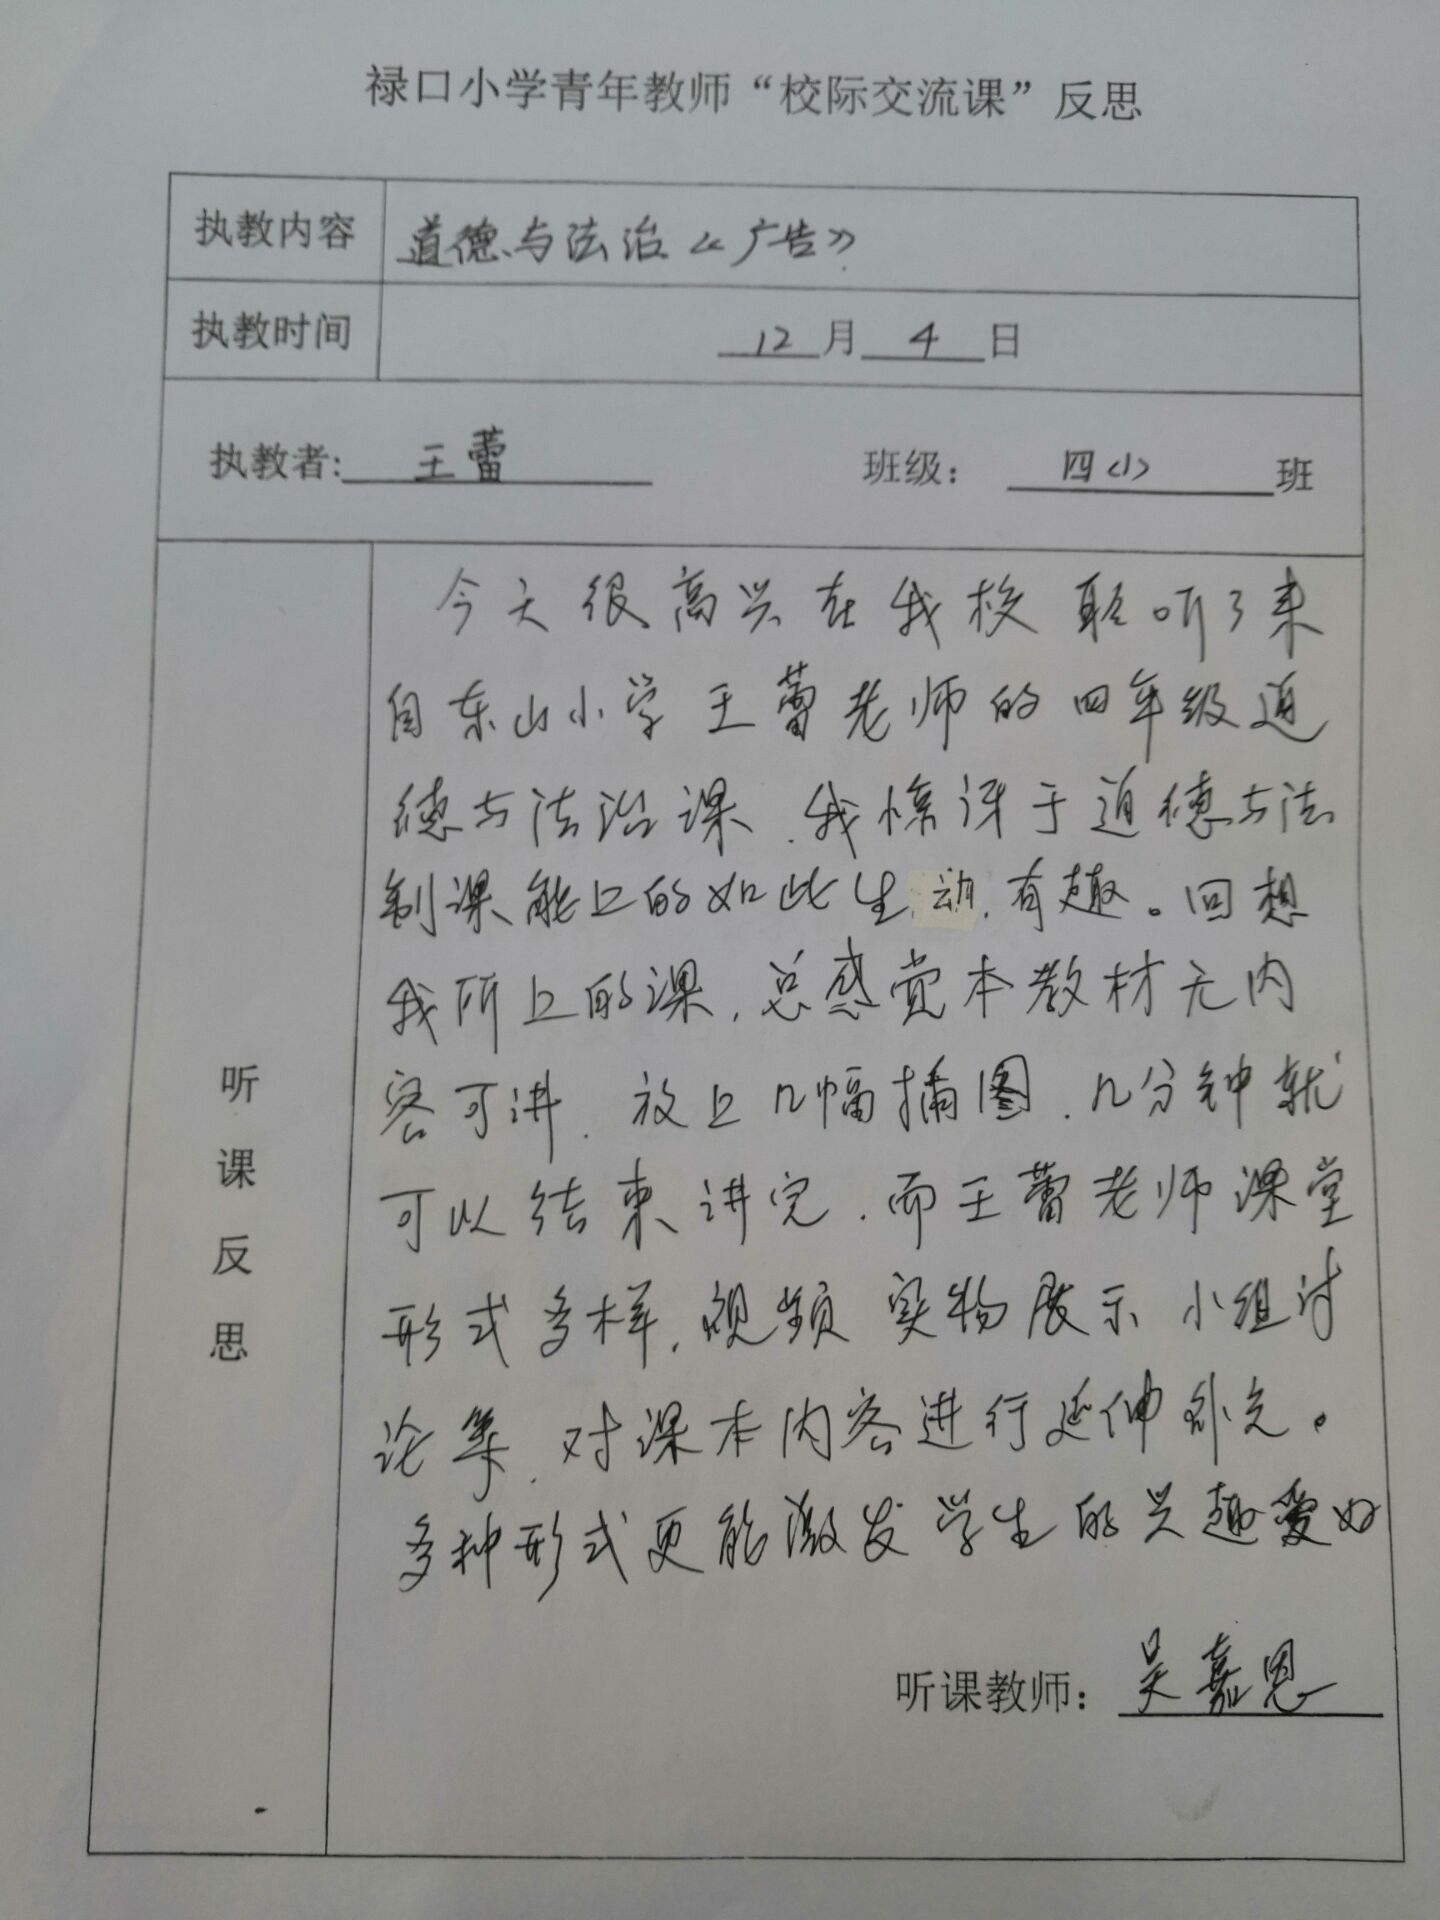 禄口小学青年教师“校际交流课”反思
执教内容 道德与法治《广告》
执教时间 12月4日
执教者: 王蕾 班级: 四(1) 班
听课反思
今天很高兴在我校聆听了来
自东山小学王蕾老师的四年级道
德与法治课,我惊讶于道德与法
制课能上的如此生动,有趣。回想
我所上的课,总感觉本教材无内
容可讲,放上几幅插图,几分钟就
可以结束讲完,而王蕾老师课堂
形式多样,视频 实物展示 小组讨
论等,对课本内容进行延伸补充。
多种形式更能激发学生的兴趣爱好
听课教师: 吴嘉恩